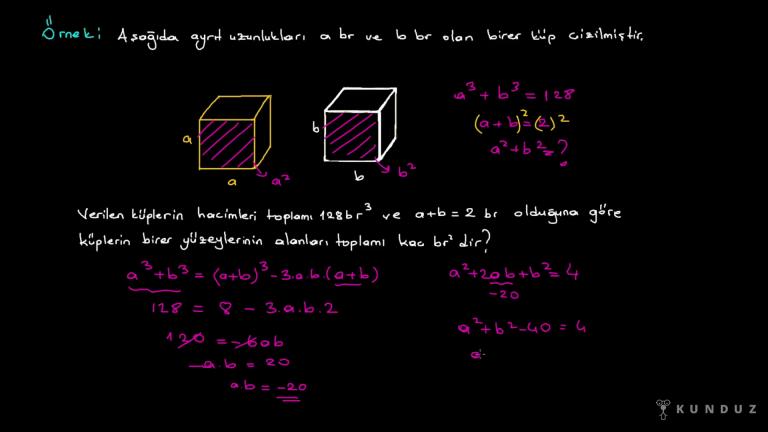 Örnek: Aşağıda ayrıt uzunlukları a br ve b br olan birer küp çizilmiştir.
a³ + b³ = 128
(a + b)² = (2)²
a² + b² = ?
a
a
a²
b
b
b²
Verilen küplerin hacimleri toplamı 128br³ ve a+b = 2 br olduğuna göre
küplerin birer yüzeylerinin alanları toplamı kaç br² dir?
a³ + b³ = (a+b)³ - 3.a.b.(a+b)
128 = 8 - 3.a.b.2
120 = -6ab
-a.b = 20
a.b = -20
a² + 2ab + b² = 4
-20
a² + b² - 40 = 4
KUNDUZ